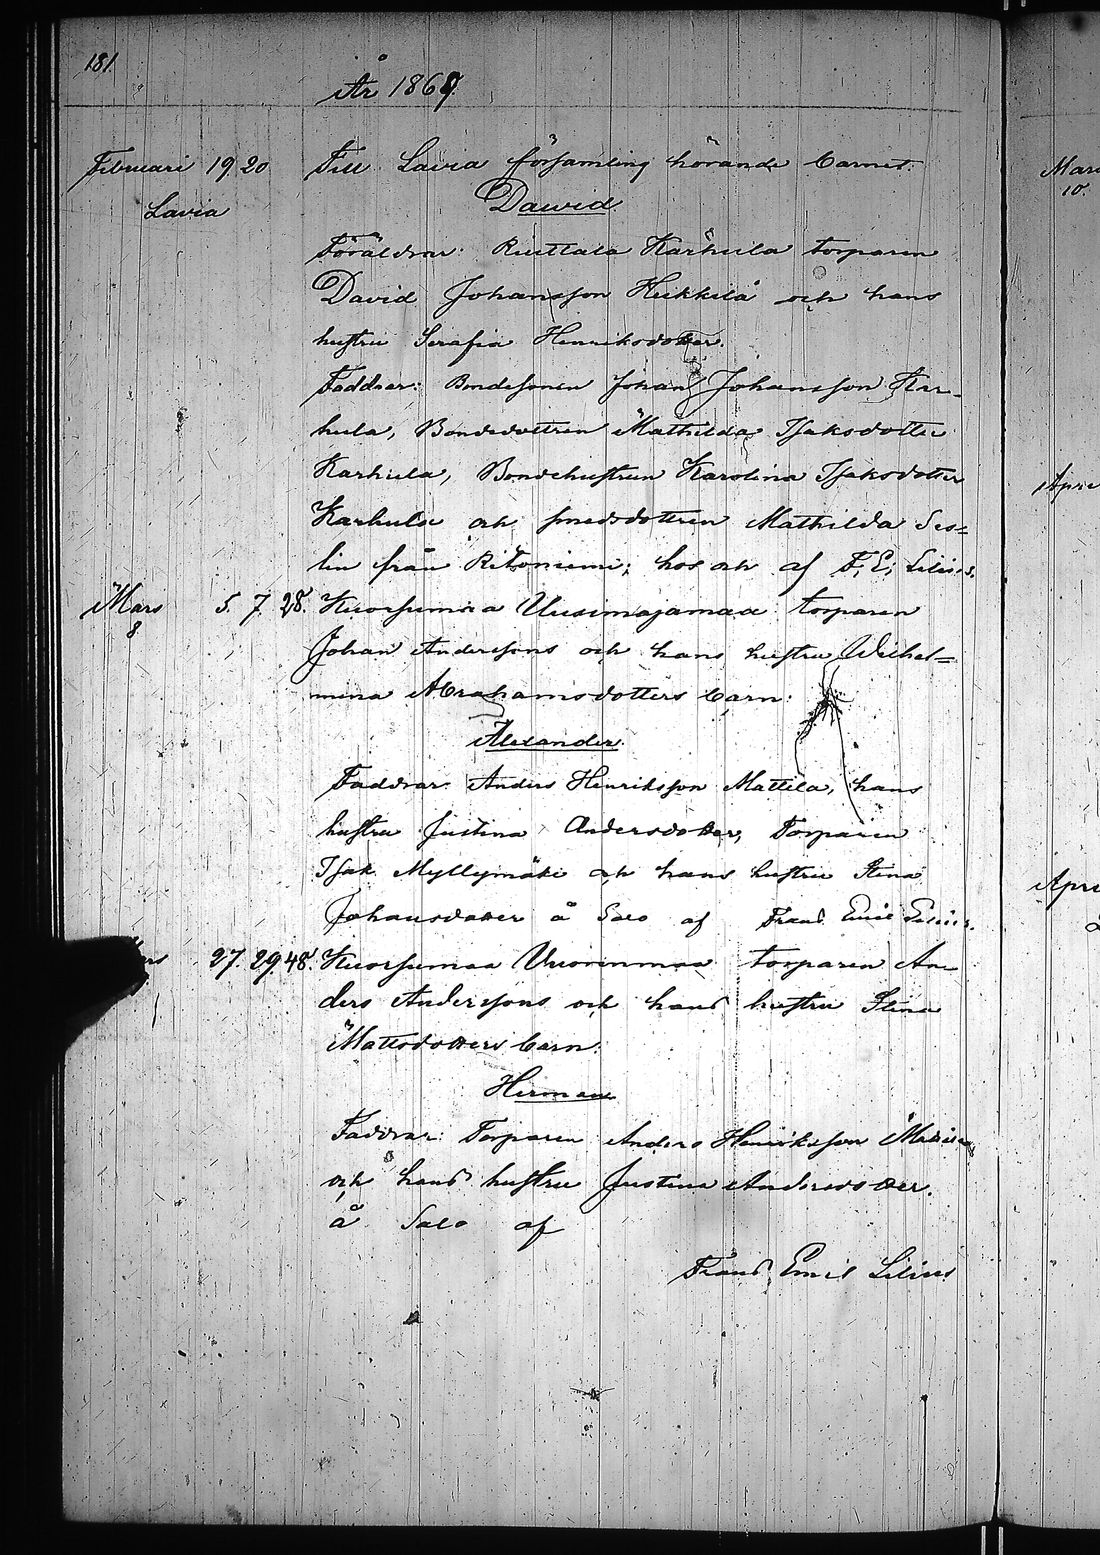 181.
År 1869.
Februari 19. 20 Till Lavia församling hörande barnet.
Lavia Dawid.
Föräldrar: Ruittala Karhula torparen
David Johansson Heikkilä och hans
hustru Serafia Henriksdotter.
Faddrar: Bondesonen Johan Johansson Kar-
hula, Bondedottren Mathilda Isaksdotter
Karhula, Bondehustrun Karolina Isaksdotter
Karhula och smedsdottren Mathilda Ses=
lin från Ritoniemi; hos och af F. E. Lilius.
Mars 5. 7. 28. Kuorsumaa Uusimajamaa torparen
8.
Johan Anderssons och hans hustru Wilhel=
mina Abrahamsdotters barn:
Alexander.
Faddrar: Anders Henriksson Mattila, hans
hustru Justina Andersdotter, Torparen
Isak Myllymäki och hans hustru Stina
Johansdotter å Salo af Frans Emil Lilius.
27. 29. 48. Kuorsumaa Vuorenmaa torparen An-
ders Anderssons och hans hustru Stina
Mattsdotters barn:
Herman
Faddrar: Torparen Anders Henriksson Mattila
och hans hustru Justina Andersdotter.
å Salo af
Frans Emil Lilius
Mars
10.
Apri
Apri
2